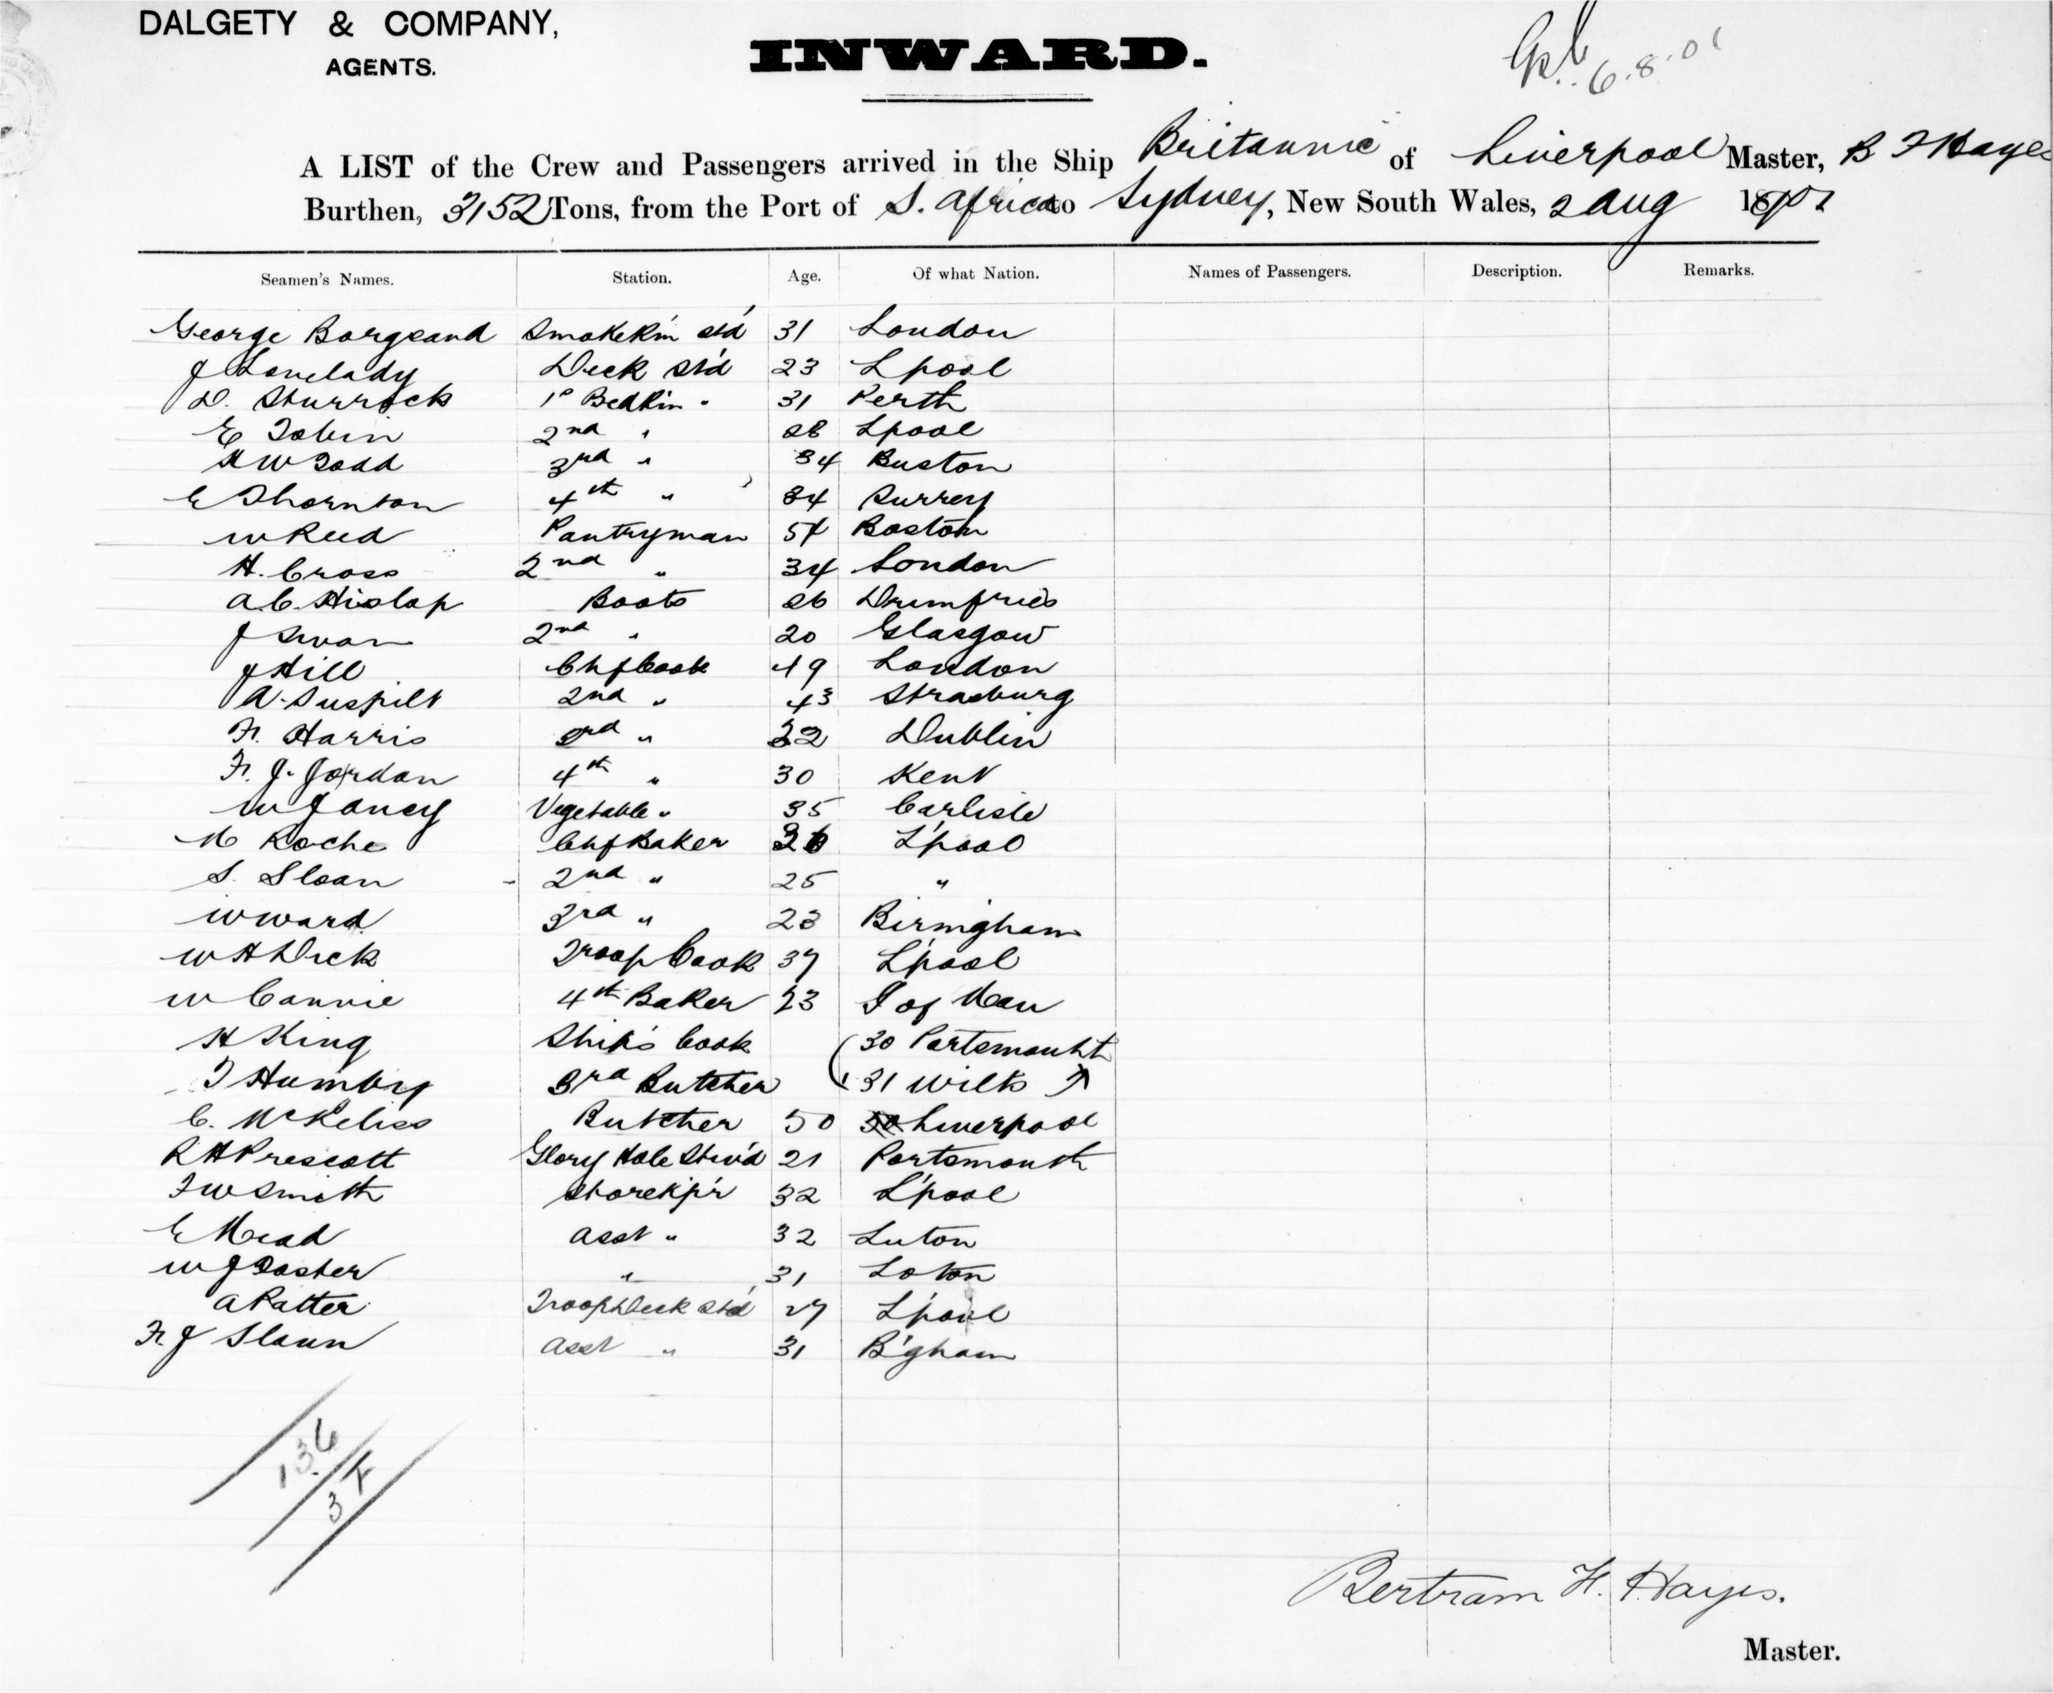 DALGETY & COMPANY,
AGENTS.
INWARD.
6.8.01
A LIST of the Crew and Passengers arrived in the Ship Britannic of Liverpool Master, B F Hayes
Burthen, 3152 Tons, from the Port of S. Africa to Sydney, New South Wales, 2 Aug 1901
Seamen's Names. Station. Age. Of what Nation. Names of Passengers. Description. Remarks.
George Borgeand SmokeRm Std 31 London
J Lovelady Deck Std 23 Lpool
D. Sturrock 1st BedRm " 31 Perth
E Tobin 2nd " 28 Lpool
H W Todd 3rd " 34 Buston
E Thornton 4th " 34 Surrey
W Reed Pantryman 54 Boston
H. Cross 2nd " 34 London
A.C. Hislop Boots 26 Drumfries
J Swan 2nd " 20 Glasgow
J Hill Chf Cook 49 London
A. Suspilt 2nd " 43 Strasburg
Fr. Harris 3rd " 32 Dublin
Fr. J. Jordan 4th " 30 Kent
W Jancy Vegetable " 35 Carlisle
M Roche Chf Baker L'pool
S. Sloan 2nd " 25 "
W Ward 3rd " 23 Birmgham
W H Dick Troop Cook 37 L'pool
W Cannie 4th Baker 23 I of Man
H King Ship's Cook 30 Portsmouht
T Humby 3rd Butcher 31 Wilts
C. McKeliss Butcher 50 Liverpool
R H Prescott Glory Hole Stew'd 21 Portsmouth
F W Smith Storekp'r 32 L'pool
E Mead Asst " 32 Luton
W J Tasker " 31 Loton
A Ratter Troop Deck Std 27 L'pool
Fr J Slaun Asst " 31 B'gham
136
3 F
Bertram F. Hayes.
Master.